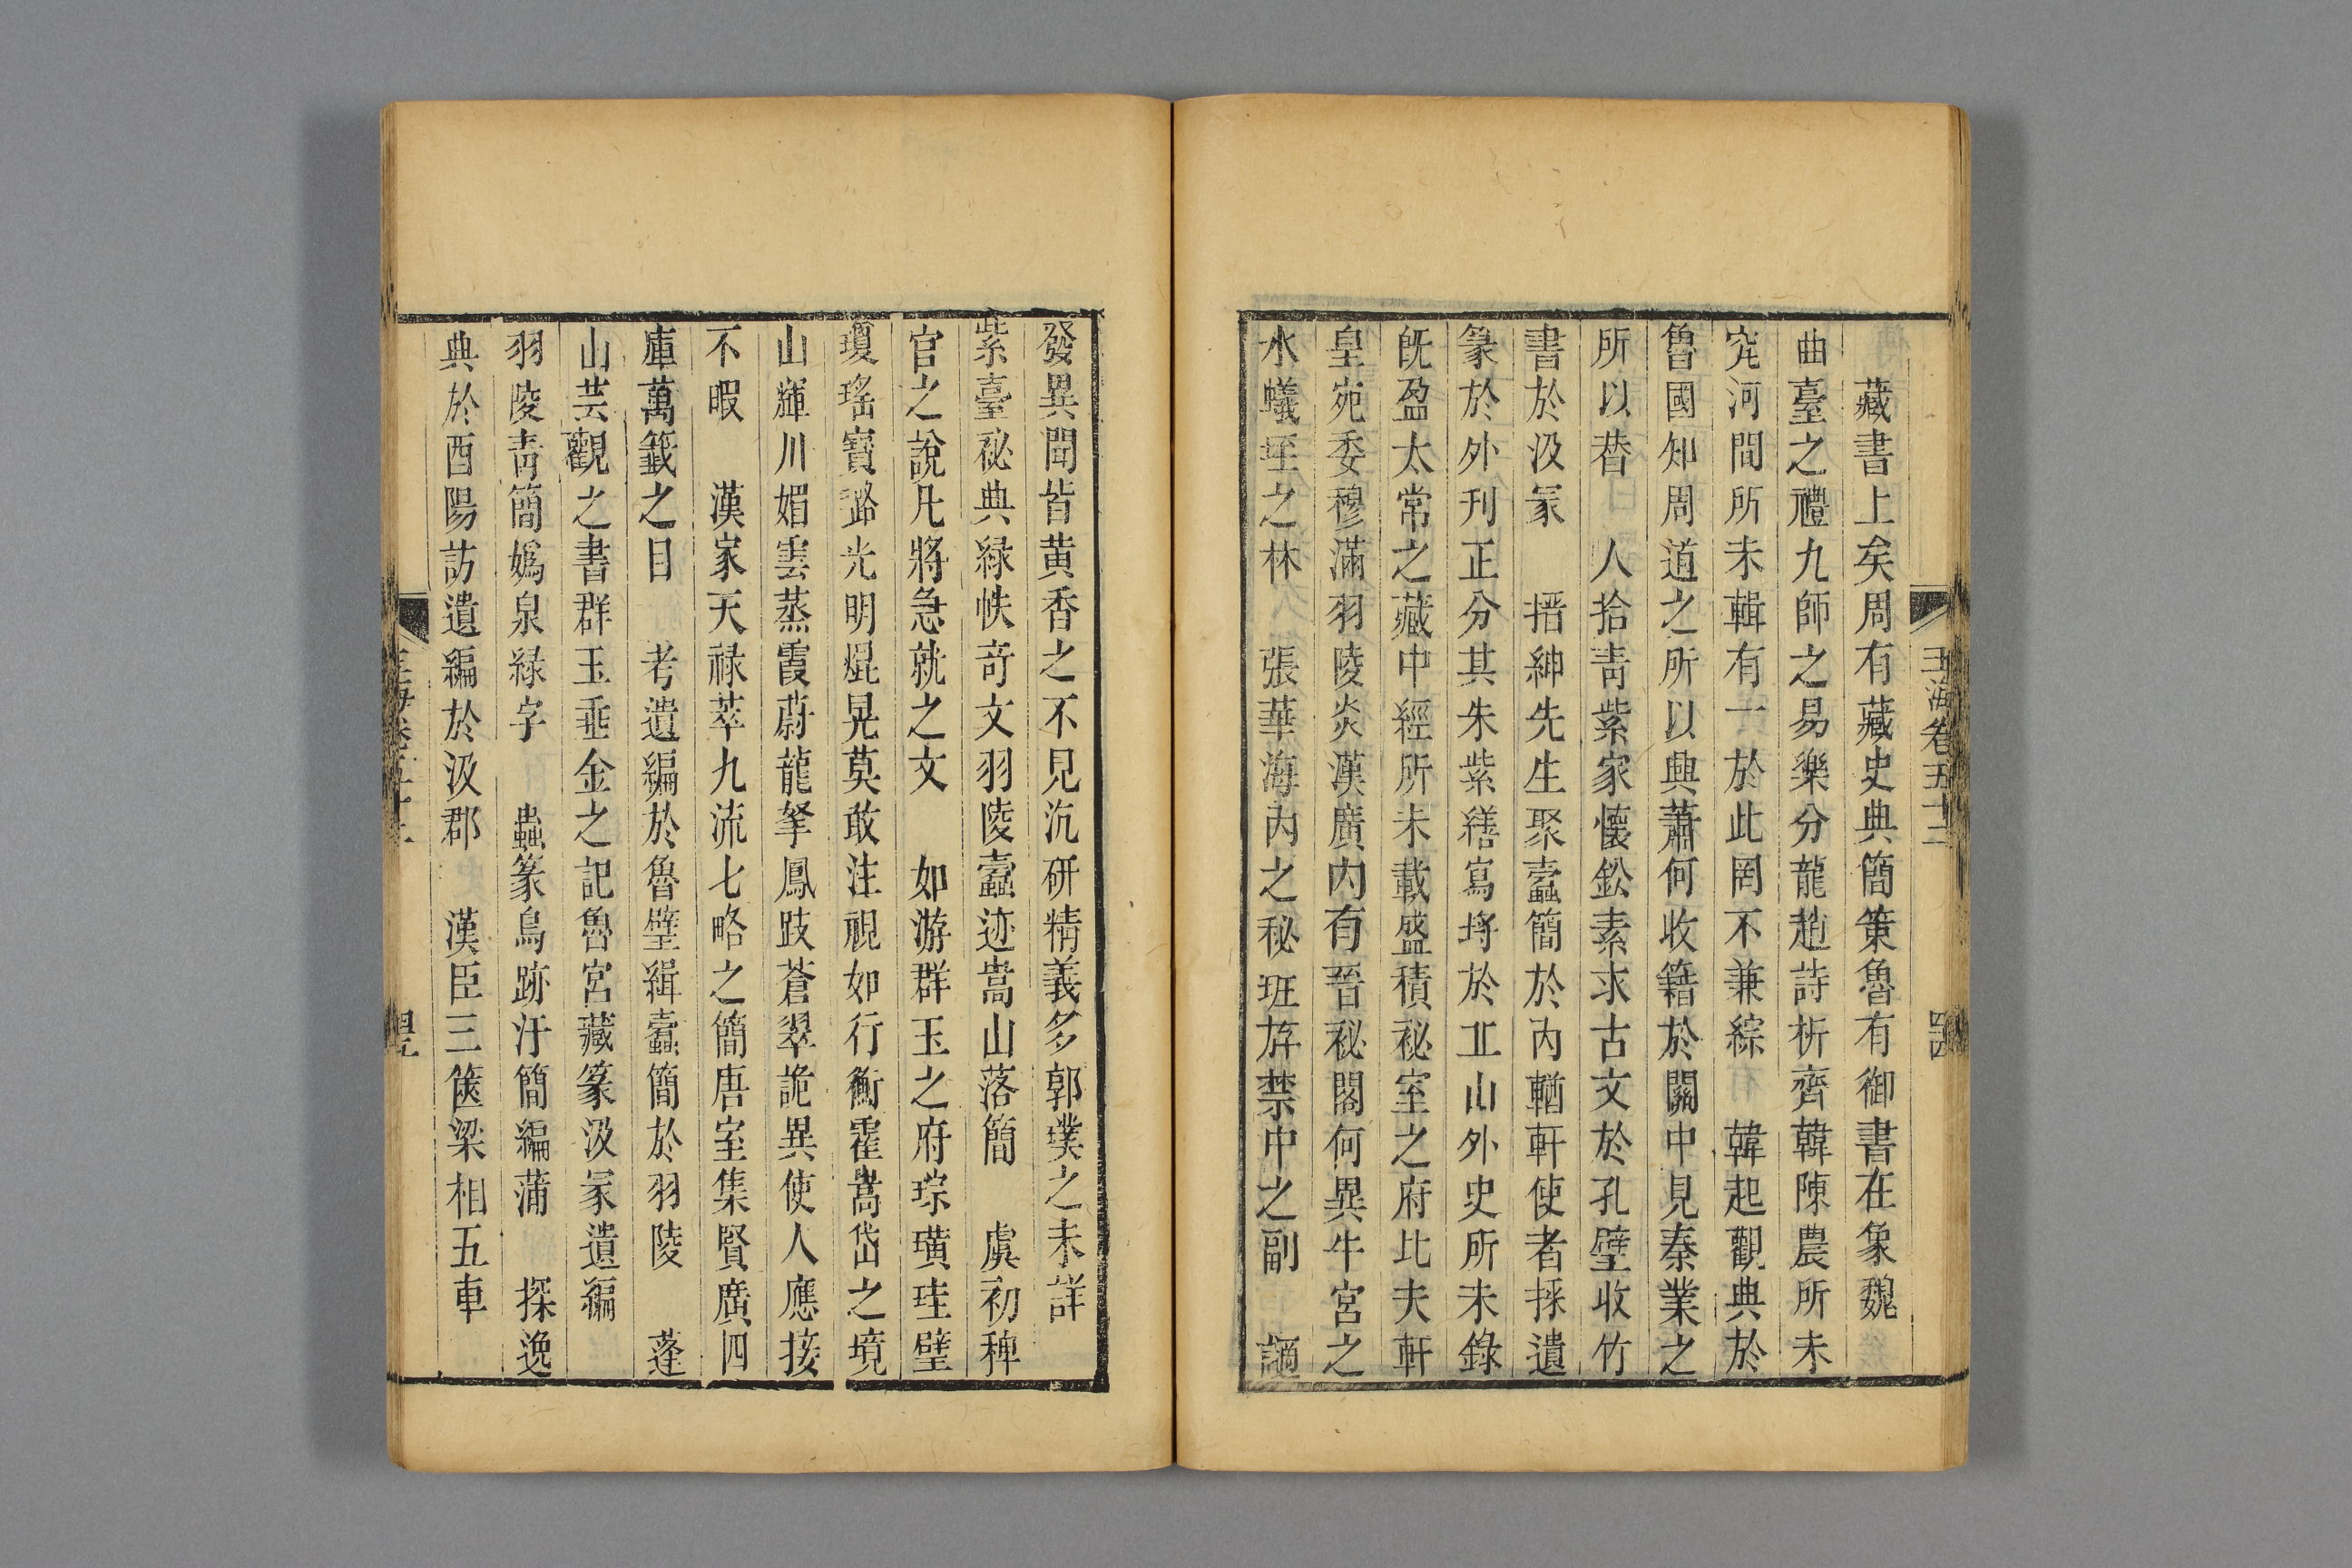 玉海卷五十二
藏書上矣周有藏史典簡策魯有御書在象魏
曲臺之禮九師之易樂分龍趙詩析齊韓陳農所未
究河間所未輯有一於此罔不兼綜　韓起觀典於
魯國知周道之所以興蕭何收籍於關中見秦業之
所以替　人拾青紫家懷鈆素求古文於孔壁收竹
書於汲冢　搢紳先生聚蠹簡於内輶軒使者採遺
篆於外刊正分其朱紫繕寫埒於丘山外史所未錄
旣盈太常之藏中經所未載盛積祕室之府比夫軒
皇宛委穆滿羽陵炎漢廣内有晉祕閣何異牛宮之
水蟻垤之林　張華海内之秘班斿禁中之副　謫
發異聞皆黄香之不見沉研精義多郭璞之未詳
紫臺祕典緑帙奇文羽陵蠹迹嵩山落簡　虞初稗
官之說凡將急就之文　如游群玉之府琮璜珪璧
瓊瑤寶璐光明焜晃莫敢注視如行衡霍嵩岱之境
山輝川媚雲蒸霞蔚龍拏鳳跂蒼翠詭異使人應接
不暇　漢家天禄萃九流七略之簡唐室集賢廣四
庫萬籤之目　考遺編於魯壁緝蠹簡於羽陵　蓬
山芸觀之書群玉垂金之記魯宮藏篆汲冢遺編
羽陵青簡嬀泉緑字　蟲篆鳥跡汗簡編蒲　探逸
典於酉陽訪遺編於汲郡　漢臣三篋梁相五車